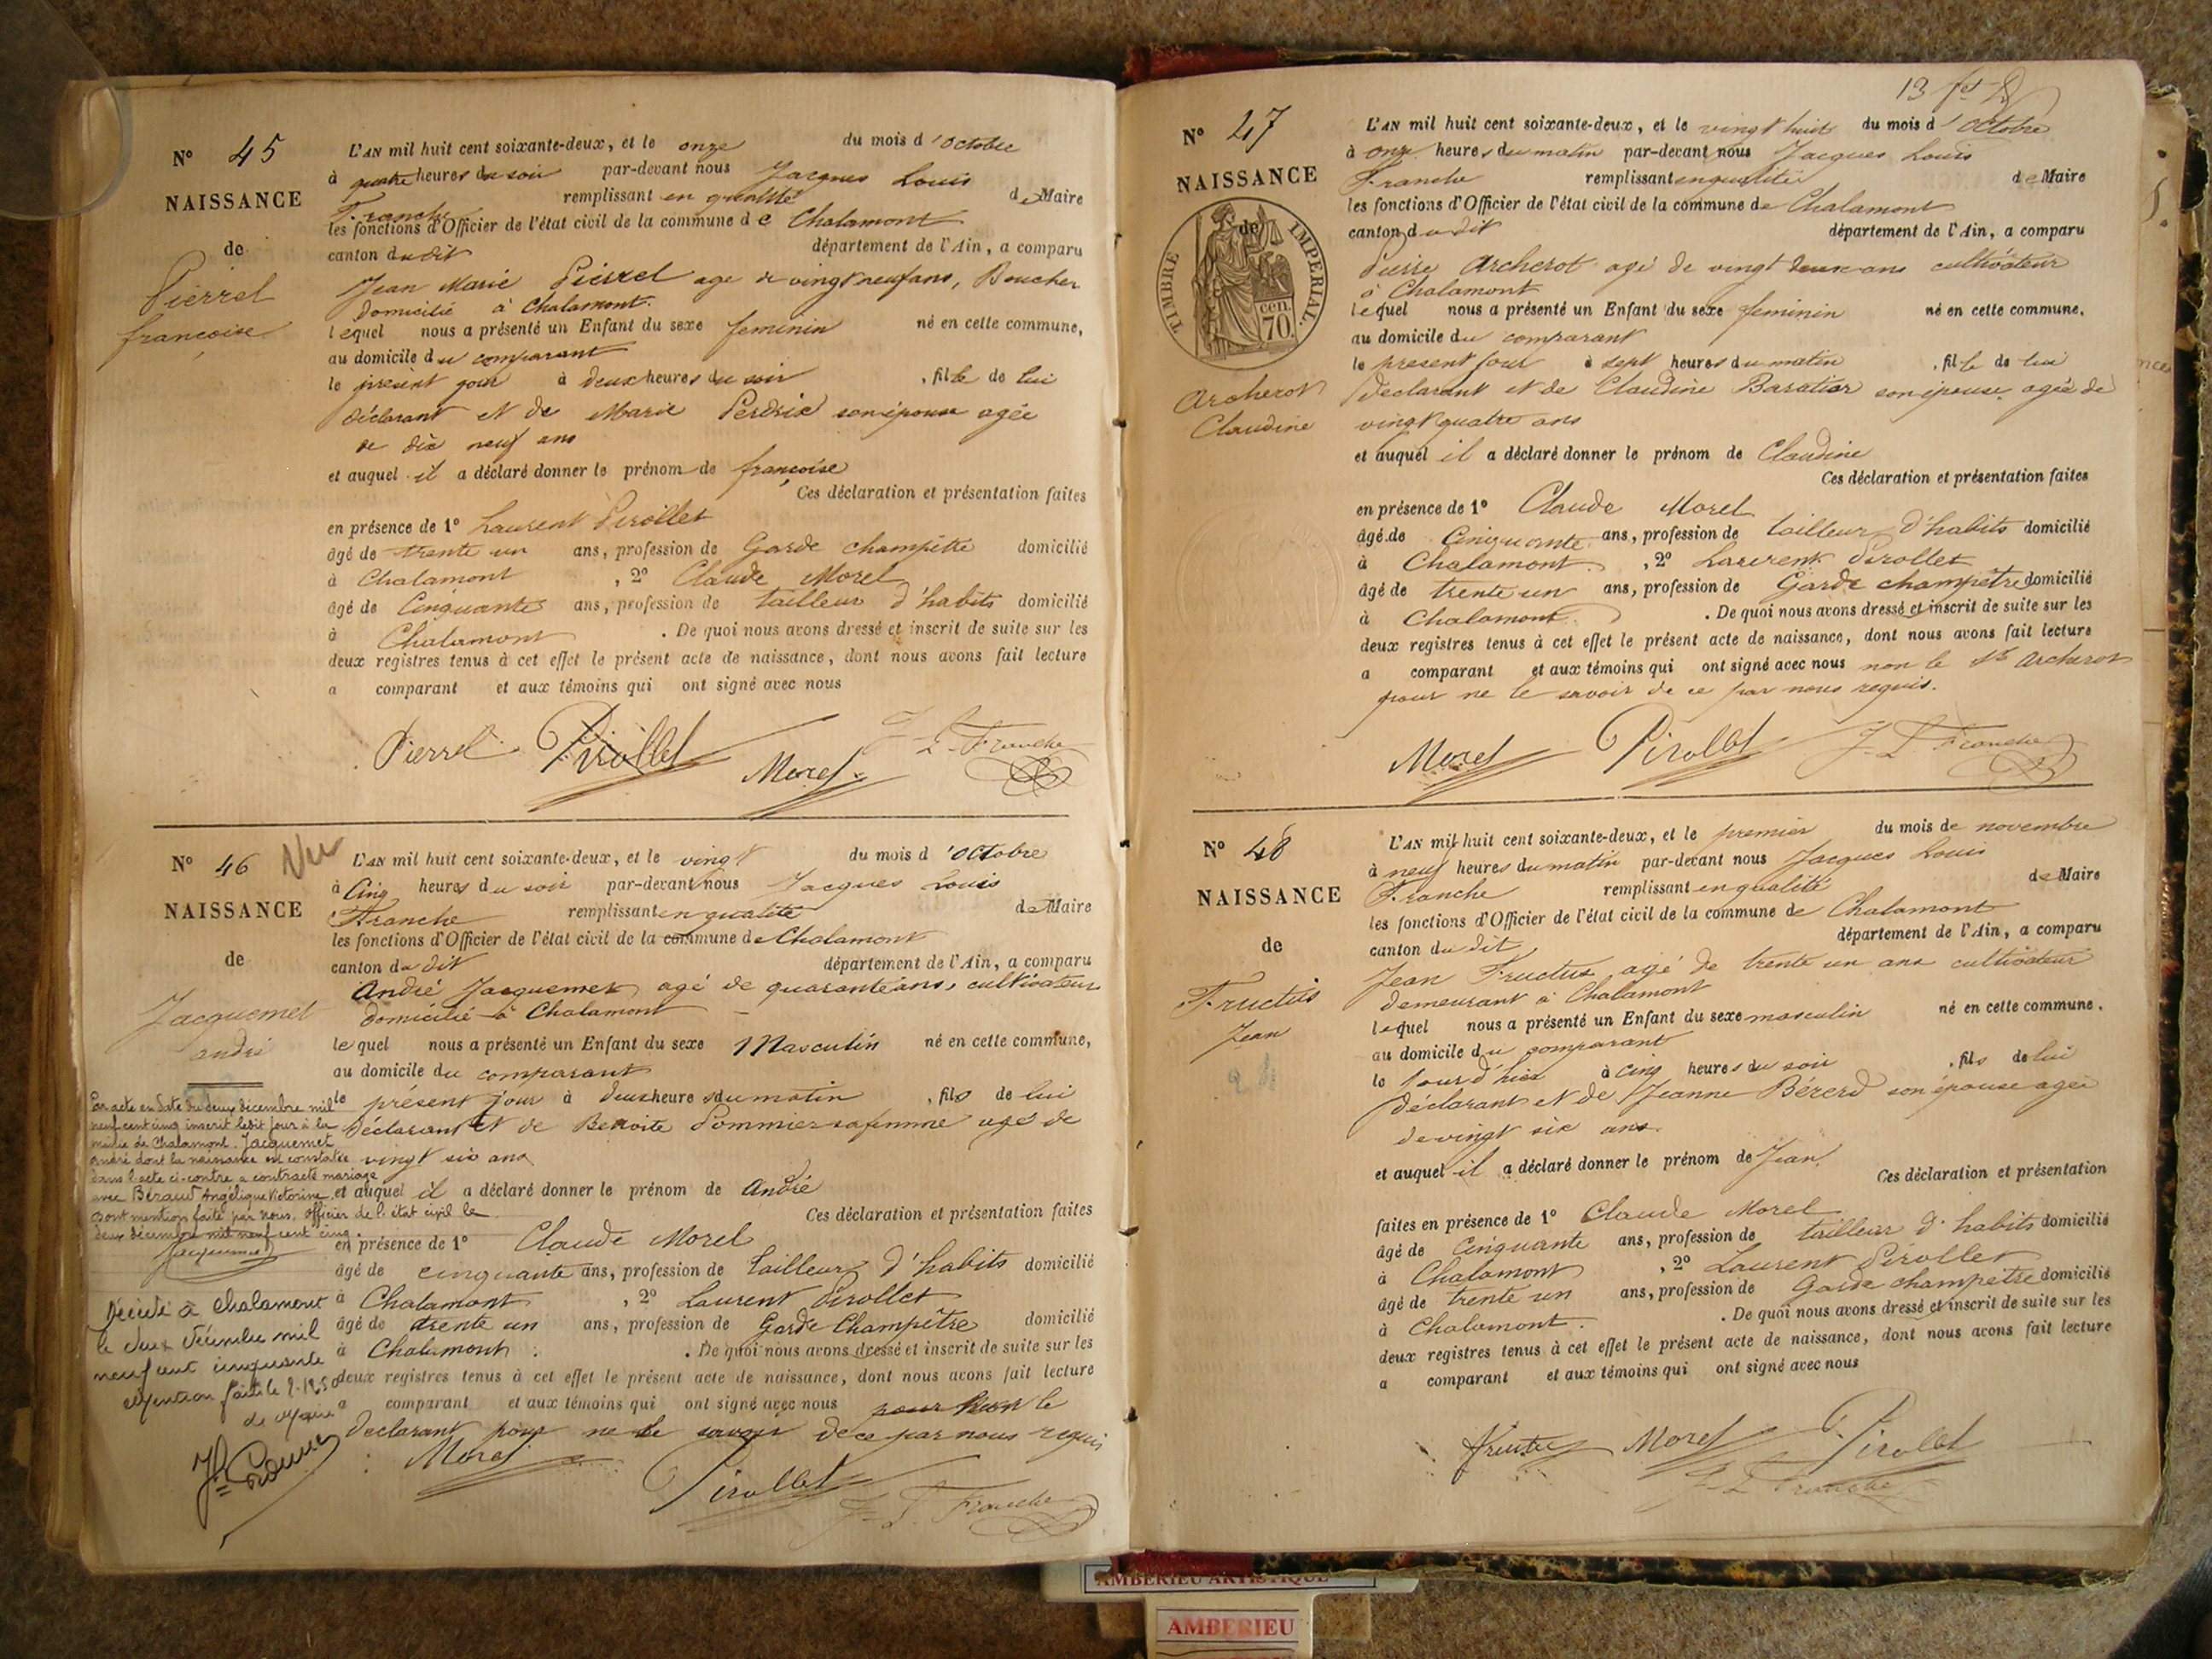 N° 45
NAISSANCE
de
Pierrel
françoise
L'AN mil huit cent soixante-deux, et le onze du mois d'octobre
à quatre heures du soir par-devant nous Jacques Louis
Franche remplissant en qualité de Maire
les fonctions d'Officier de l'état civil de la commune de Chalamont
canton dudit département de l'Ain, a comparu
Jean Marie Pierrel age de vingt neuf ans, Boucher
domicilié à Chalamont.
lequel nous a présenté un Enfant du sexe feminin né en cette commune,
au domicile du comparant
le présent jour à deux heures du soir , fille de lui
déclarant et de Marie Perdrix son épouse agée
de dix neuf ans
et auquel il a déclaré donner le prénom de françoise
Ces déclaration et présentation faites
en présence de 1° Laurent Pirollet
âgé de trente un ans, profession de Garde champêtre domicilié
à Chalamont , 2° Claude Morel
âgé de Cinquante ans, profession de tailleur d'habits domicilié
à Chalamont . De quoi nous avons dressé et inscrit de suite sur les
deux registres tenus à cet effet le présent acte de naissance, dont nous avons fait lecture
a comparant et aux témoins qui ont signé avec nous
Pierrel Pirollet Morel J L Franche
N° 46 Vu
NAISSANCE
de
Jacquemet
andré
L'AN mil huit cent soixante-deux, et le vingt du mois d'octobre
à Cinq heures du soir par-devant nous Jacques Louis
Franche remplissant en qualité de Maire
les fonctions d'Officier de l'état civil de la commune de Chalamont
canton du dit département de l'Ain, a comparu
André Jacquemet, agé de quarante ans, cultivateur
domicilié à Chalamont
lequel nous a présenté un Enfant du sexe Masculin né en cette commune,
au domicile du comparant
le présent jour à deux heures du matin , fils de lui
déclarant et de Benoite Pommier sa femme agé de
vingt six ans
et auquel il a déclaré donner le prénom de André
Ces déclaration et présentation faites
en présence de 1° Claude Morel
âgé de cinquante ans, profession de tailleur d'habits domicilié
à Chalamont , 2° Laurent Pirollet
âgé de trente un ans, profession de Garde Champêtre domicilié
à Chalamont . De quoi nous avons dressé et inscrit de suite sur les
deux registres tenus à cet effet le présent acte de naissance, dont nous avons fait lecture
a comparant et aux témoins qui ont signé avec nous pour non le
declarant pour ne le savoir de ce par nous requis
Morel Pirollet J L Franche
Par acte en date du deux décembre mil
neuf cent cinq inscrit ledit jour à la
mairie de Chalamont. Jacquemet
andré dont la naissance est constatée
dans l'acte ci-contre a contracté mariage
avec Béraud Angélique Victorine.
dont mention faite par nous, officier de l'état civil le
deux décembre mil neuf cent cinq.
Jacquemet
Décédé à Chalamont
le deux décembre mil
neuf cent cinquante
mention faite le
13
N° 47
NAISSANCE
de
TIMBRE IMPERIAL.
70 cen.
Archerot
Claudine
L'AN mil huit cent soixante-deux, et le vingt huit du mois d'octobre
à onze heures du matin par-devant nous Jacques Louis
Franche remplissant en qualité de Maire
les fonctions d'Officier de l'état civil de la commune de Chalamont
canton du dit département de l'Ain, a comparu
Pierre Archerot agé de vingt deux ans cultivateur
à Chalamont
lequel nous a présenté un Enfant du sexe feminin né en cette commune,
au domicile du comparant
le present jour à sept heures du matin , fille de lui
declarant et de Claudine Baratier son épouse. agée de
vingt quatre ans
et auquel il a déclaré donner le prénom de Claudine
Ces déclaration et présentation faites
en présence de 1° Claude Morel
âgé de Cinquante ans, profession de tailleur d'habits domicilié
à Chalamont. , 2° Laurent Pirollet
âgé de trente un ans, profession de Garde champêtre domicilié
à Chalamont . De quoi nous avons dressé et inscrit de suite sur les
deux registres tenus à cet effet le présent acte de naissance, dont nous avons fait lecture
a comparant et aux témoins qui ont signé avec nous non le Sr Archerot
pour ne le savoir de ce par nous requis.
Morel Pirollet J L Franche
N° 48
NAISSANCE
de
Fructus
Jean
L'AN mil huit cent soixante-deux, et le premier du mois de novembre
à neuf heures du matin par-devant nous Jacques Louis
Franche remplissant en qualité de Maire
les fonctions d'Officier de l'état civil de la commune de Chalamont
canton du dit département de l'Ain, a comparu
Jean Fructus agé de trente un ans cultivateur
demeurant à Chalamont
lequel nous a présenté un Enfant du sexe masculin né en cette commune.
au domicile du comparant
le jour d'hier à cinq heures du soir , fils de lui
déclarant et de Jeanne Bérerd son épouse agée
de vingt six ans.
et auquel il a déclaré donner le prénom de Jean.
Ces déclaration et présentation
faites en présence de 1° Claude Morel
âgé de Cinquante ans, profession de tailleur d'habits domicilié
à Chalamont , 2° Laurent Pirollet
âgé de trente un ans, profession de Garde champêtre domicilié
à Chalamont. . De quoi nous avons dressé et inscrit de suite sur les
deux registres tenus à cet effet le présent acte de naissance, dont nous avons fait lecture
a comparant et aux témoins qui ont signé avec nous
Fructus Morel Pirollet
J L Franche
AMBERIEU ARTISTIQUE
AMBERIEU